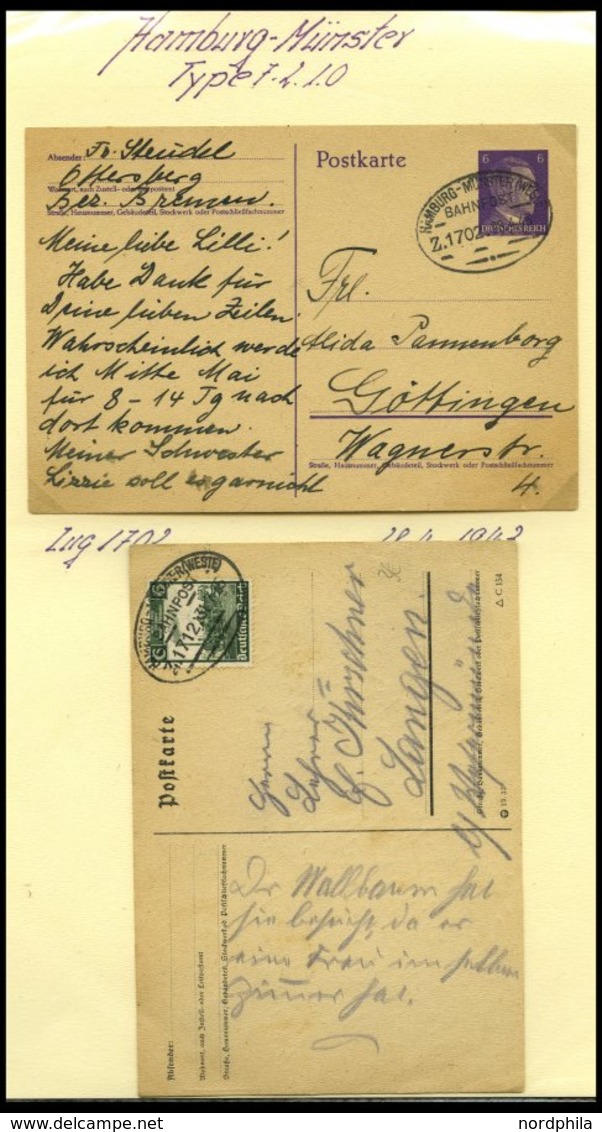 Hamburg-Münster
Type 7.2.1.0
Absender: Fr. Steudel
Ottersberg
Wohnort, auch Zustell- oder Leitpostamt
Bez. Bremen.
Straße, Hausnummer, Gebäudeteil, Stockwerk oder Postschließfachnummer
Meine liebe Lilli!
Habe Dank für
Deine lieben Zeilen.
Wahrscheinlich werde
ich Mitte Mai
für 8 - 14 Tg nach
dort kommen.
Meiner Schwester
Lizzie soll es garnicht
Postkarte
6 6
DEUTSCHES REICH
HAMBURG-MÜNSTER (WESTF)
BAHNPOST
Z.1702
Frl.
Alida Pannenborg
Göttingen
Wagnerstr.
Straße, Hausnummer, Gebäudeteil, Stockwerk oder Postschließfachnummer
4.
Zug 1702
1943
(WESTF)
BAHNPOST
1712
6
Deutsches Reich
Postkarte
Herrn
Lehrer
Langen
Straße, Hausnummer, Gebäudeteil, Stockwerk oder Postschließfachnummer
C 154
Dr Wallbaum hat
sie besucht, da er
eine Frau im selben
Zimmer hat.
Absender:
Wohnort, auch Zustell- oder Leitpostamt
Straße, Hausnummer, Gebäudeteil, Stockwerk od. Postschließfachnummer
www.delcampe.net
nordphila